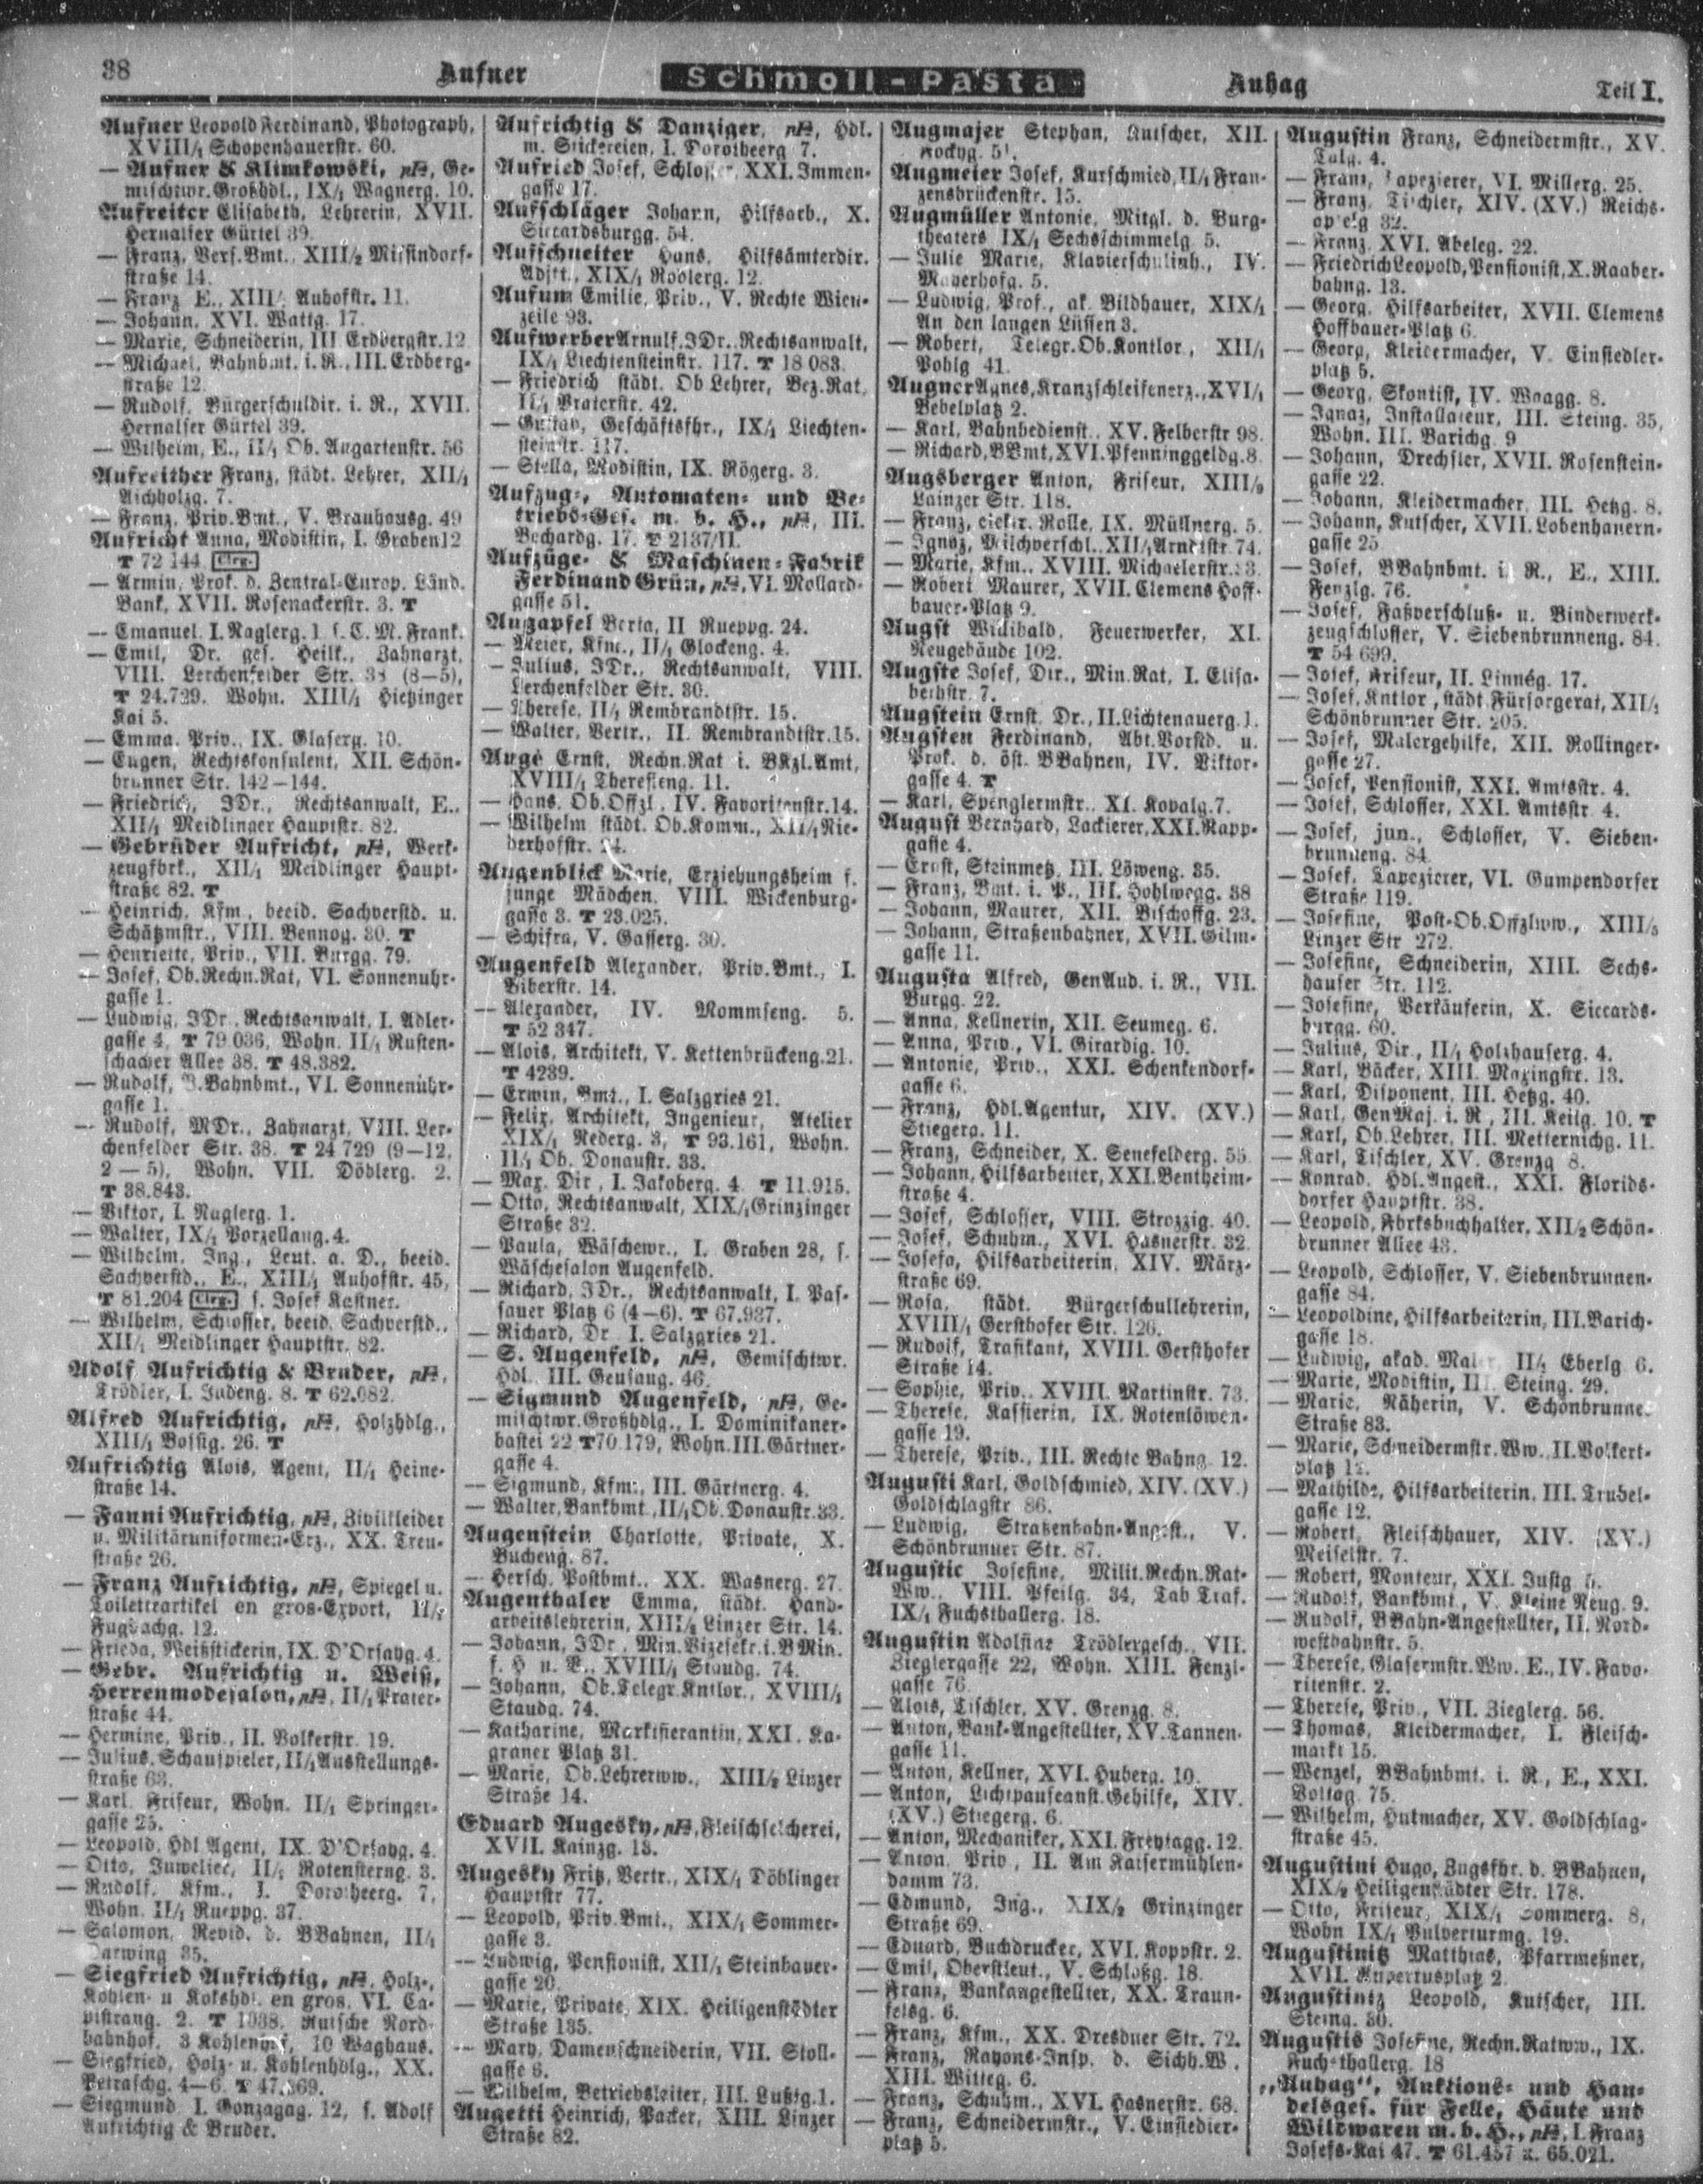 38
Aufner
Schmoll-Pasta
Auhag
Teil I.
Aufner Leopold Ferdinand, Photograph,
XVIII/1 Schopenhauerstr. 60.
— Aufner & Klimkowski, pH, Ge-
mischtwr. Großhdl., IX/1 Wagnerg. 10.
Aufreiter Elisabeth, Lehrerin, XVII.
Hernalser Gürtel 39.
— Franz, Vers.Bmt., XIII/2 Missindorf-
straße 14.
— Franz E., XIII/ Auhofstr. 11.
— Johann, XVI. Wattg. 17.
— Marie, Schneiderin, III Erdbergstr. 12
— Michael, Bahnbmt. i. R., III. Erdberg-
straße 12.
— Rudolf, Bürgerschuldir. i. R., XVII.
Hernalser Gürtel 39.
— Wilhelm, E., II/1 Ob. Augartenstr. 56
Aufreither Franz, städt. Lehrer, XII/1
Aichholzg. 7.
— Franz, Priv.Bmt., V. Brauhausg. 49
Aufricht Anna, Modistin, I. Graben 12
T 72 144 Clrg.
— Armin, Prok. d. Zentral-Europ. Länd.
Bank, XVII. Rosenackerstr. 3. T
— Emanuel, I. Naglerg. 1 s. C. M. Frank.
— Emil, Dr. ges. Heilk., Zahnarzt,
VIII. Lerchenfelder Str. 38 (8—5),
T 24.729. Wohn. XIII/1 Hietzinger
Kai 5.
— Emma, Priv., IX. Glaserg. 10.
— Eugen, Rechtskonsulent, XII. Schön-
brunner Str. 142—144.
— Friedrich, JDr., Rechtsanwalt, E.,
XII/1 Meidlinger Hauptstr. 82.
— Gebrüder Aufricht, pH, Werk-
zeugfbrk., XII/1 Meidlinger Haupt-
straße 82. T
— Heinrich, Kfm., beeid. Sachverstd. u.
Schätzmstr., VIII. Bennog. 30. T
— Henriette, Priv., VII. Burgg. 79.
— Josef, Ob.Rechn.Rat, VI. Sonnenuhr-
gasse 1.
— Ludwig, JDr., Rechtsanwalt, I. Adler-
gasse 4, T 79.036, Wohn. II/1 Rusten-
schacher Allee 38. T 48.382.
— Rudolf, B.Bahnbmt., VI. Sonnenuhr-
gasse 1.
— Rudolf, MDr., Zahnarzt, VIII. Ler-
chenfelder Str. 38. T 24 729 (9—12,
2—5), Wohn. VII. Döblerg. 2.
T 38.843.
— Viktor, I. Naglerg. 1.
— Walter, IX/1 Porzellang. 4.
— Wilhelm, Ing., Leut. a. D., beeid.
Sachverstd., E., XIII/1 Auhofstr. 45,
T 81.204 Clrg. s. Josef Kastner.
— Wilhelm, Schlosser, beeid. Sachverstd.,
XII/1 Meidlinger Hauptstr. 82.
Adolf Aufrichtig & Bruder, pH,
Trödler, I. Judeng. 8. T 62.082.
Alfred Aufrichtig, pH, Holzhdlg.,
XIII/1 Bossig. 26. T
Aufrichtig Alois, Agent, II/1 Heine-
straße 14.
— Fanni Aufrichtig, pH, Zivilkleider
u. Militäruniformen-Erz., XX. Treu-
straße 26.
— Franz Aufrichtig, pH, Spiegel u.
Toiletteartikel en gros-Export, II/2
Fugbachg. 12.
— Frieda, Weißstickerin, IX. D'Orsayg. 4.
— Gebr. Aufrichtig u. Weiß,
Herrenmodesalon, pH, II/1 Prater-
straße 44.
— Hermine, Priv., II. Volkerstr. 19.
— Julius, Schauspieler, II/1 Ausstellungs-
straße 63.
— Karl, Friseur, Wohn. II/1 Springer-
gasse 25.
— Leopold, Hdl.Agent, IX. D'Orsayg. 4.
— Otto, Juwelier, II/2 Rotensterng. 3.
— Rudolf, Kfm., I. Dorotheerg. 7,
Wohn. II/1 Rueppg. 37.
— Salomon, Revid. d. BBahnen, II/1
Darwing 35.
— Siegfried Aufrichtig, pH, Holz-,
Kohlen- u Kokshdl. en gros, VI. Ca-
pistrang. 2. T 1038. Rutsche Nord-
bahnhof, 3 Kohlenhof, 10 Waghaus.
— Siegfried, Holz- u. Kohlenhdlg., XX.
Petraschg. 4—6.
— Siegmund, I. Gonzagag. 12, s. Adolf
Aufrichtig & Bruder.
Aufrichtig & Danziger, pH, Hdl.
m. Stickereien, I. Dorotheerg 7.
Aufried Josef, Schlosser, XXI. Immen-
gasse 17.
Aufschläger Johann, Hilfsarb., X.
Siccardsburgg. 54.
Aufschneiter Hans, Hilfsämterdir.
Adjkt., XIX/1 Rodlerg. 12.
Aufum Emilie, Priv., V. Rechte Wien-
zeile 93.
Aufwerber Arnulf, JDr., Rechtsanwalt,
IX/1 Liechtensteinstr. 117. T 18 083.
— Friedrich städt. Ob Lehrer, Bez.Rat,
II/1 Praterstr. 42.
— Gustav, Geschäftsfhr., IX/1 Liechten-
steinstr. 117.
— Stella, Modistin, IX. Rögerg. 3.
Aufzug-, Automaten- und Be-
triebs-Ges. m. b. H., pH, III.
Bechardg. 17. T 2137/II.
Aufzüge- & Maschinen-Fabrik
Ferdinand Grün, pH, VI. Mollard-
gasse 51.
Augapfel Berta, II Rueppg. 24.
— Meier, Kfm., II/1 Glockeng. 4.
— Julius, JDr., Rechtsanwalt, VIII.
Lerchenfelder Str. 30.
— Therese, II/1 Rembrandtstr. 15.
— Walter, Vertr., II. Rembrandtstr. 15.
Augé Ernst, Rechn.Rat i. BKzl.Amt,
XVIII/1 Theresieng. 11.
— Hans, Ob.Offzl., IV. Favoritenstr. 14.
— Wilhelm städt. Ob.Komm., XII/1 Nie-
derhofstr.
Augenblick Marie, Erziehungsheim f.
junge Mädchen, VIII. Wickenburg-
gasse 3. T 23.025.
— Schifra, V. Gasserg. 30.
Augenfeld Alexander, Priv.Bmt., I.
Biberstr. 14.
— Alexander, IV. Mommseng. 5.
T 52 347.
— Alois, Architekt, V. Kettenbrückeng. 21.
T 4239.
— Erwin, Bmt., I. Salzgries 21.
— Felix, Architekt, Ingenieur, Atelier
XIX/1 Nederg. 3, T 93.161, Wohn.
II/1 Ob. Donaustr. 33.
— Max, Dir., I. Jakoberg. 4. T 11.915.
— Otto, Rechtsanwalt, XIX/1 Grinzinger
Straße 32.
— Paula, Wäschewr., I. Graben 28, s.
Wäschesalon Augenfeld.
— Richard, JDr., Rechtsanwalt, I. Pas-
sauer Platz 6 (4—6). T 67.937.
— Richard, Dr I. Salzgries 21.
— S. Augenfeld, pH, Gemischtwr.
Hdl. III. Geusaug. 46.
— Sigmund Augenfeld, pH, Ge-
mischtwr.Großhdlg., I. Dominikaner-
bastei 22 T 70 179, Wohn. III. Gärtner-
gasse 4.
— Sigmund, Kfm., III. Gärtnerg. 4.
— Walter, Bankbmt., II/1 Ob. Donaustr. 33.
Augenstein Charlotte, Private, X.
Bucheng. 87.
— Hersch, Postbmt., XX. Wasnerg. 27.
Augenthaler Emma, städt. Hand-
arbeitslehrerin, XIII/2 Linzer Str. 14.
— Johann, JDr., Min.Vizesekr. i. BMin.
f. H u. V., XVIII/1 Staudg. 74.
— Johann, Ob.Telegr.Kntlor., XVIII/1
Staudg. 74.
— Katharine, Marktfierantin, XXI. Ka-
graner Platz 31.
— Marie, Ob.Lehrerww., XIII/2 Linzer
Straße 14.
Eduard Augesky, pH, Fleischselcherei,
XVII. Kainzg. 13.
Augesky Fritz, Vertr., XIX/1 Döblinger
Hauptstr 77.
— Leopold, Priv.Bmt., XIX/1 Sommer-
gasse 3.
— Ludwig, Pensionist, XII/1 Steinbauer-
gasse 20.
— Marie, Private, XIX. Heiligenstädter
Straße 135.
— Mary, Damenschneiderin, VII. Stoll-
gasse 6.
— Wilhelm, Betriebsleiter, III. Lußtg. 1.
Augetti Heinrich, Packer, XIII. Linzer
Straße 82.
Augmajer Stephan, Kutscher, XII.
Hockyg.
Augmeier Josef, Kurschmied, II/1 Fran-
zensbrückenstr. 15.
Augmüller Antonie, Mitgl. d. Burg-
theaters IX/1 Sechsschimmelg. 5.
— Julie Marie, Klavierschulinh., IV.
Mayerhofg. 5.
— Ludwig, Prof., ak. Bildhauer, XIX/1
An den langen Lüssen 3.
— Robert, Telegr.Ob.Kontlor., XII/1
Pohlg 41.
Augner Agnes, Kranzschleifenerz., XVI/1
Bebelplatz 2.
— Karl, Bahnbedienst., XV. Felberstr 98.
— Richard, BBmt, XVI. Pfenninggeldg. 8.
Augsberger Anton, Friseur, XIII/9
Lainzer Str. 118.
— Franz, elektr. Rolle, IX. Müllnerg. 5.
— Ignaz, Milchverschl., XII/1 Arndtstr 74.
— Marie, Kfm., XVIII. Michaelerstr.
— Robert Maurer, XVII. Clemens Hoff-
bauer-Platz 9.
Augst Willibald, Feuerwerker, XI.
Neugebäude 102.
Augste Josef, Dir., Min.Rat, I. Elisa-
bethstr. 7.
Augstein Ernst, Dr., II. Lichtenauerg. 1.
Augsten Ferdinand, Abt.Vorstd. u.
Prok. d. öst. BBahnen, IV. Viktor-
gasse 4. T
— Karl, Spenglermstr., XI. Kopalg. 7.
August Bernhard, Lackierer, XXI. Rapp-
gasse 4.
— Ernst, Steinmetz, III. Löweng. 35.
— Franz, Bmt. i. P., III. Hohlwegg. 38
— Johann, Maurer, XII. Bischoffg. 23.
— Johann, Straßenbahner, XVII. Gilm-
gasse 11.
Augusta Alfred, GenAud. i. R., VII.
Burgg. 22.
— Anna, Kellnerin, XII. Seumeg. 6.
— Anna, Priv., VI. Girardig. 10.
— Antonie, Priv., XXI. Schenkendorf-
gasse 6.
— Franz, Hdl.Agentur, XIV. (XV.)
Stiegerg. 11.
— Franz, Schneider, X. Senefelderg. 55.
— Johann, Hilfsarbeiter, XXI. Bentheim-
straße 4.
— Josef, Schlosser, VIII. Strozzig. 40.
— Josef, Schuhm., XVI. Hasnerstr. 32.
— Josefa, Hilfsarbeiterin, XIV. März-
straße 69.
— Rosa, städt. Bürgerschullehrerin,
XVIII/1 Gersthofer Str. 126.
— Rudolf, Trafikant, XVIII. Gersthofer
Straße 14.
— Sophie, Priv., XVIII. Martinstr. 73.
— Therese, Kassierin, IX. Rotenlöwen-
gasse 19.
— Therese, Priv., III. Rechte Bahng. 12.
Augusti Karl, Goldschmied, XIV. (XV.)
Goldschlagstr. 86.
— Ludwig, Straßenbahn-Angest., V.
Schönbrunner Str. 87.
Augustic Josefine, Milit.Rechn.Rat-
Ww., VIII. Pfeilg. 34, Tab Traf.
IX/1 Fuchsthallerg. 18.
Augustin Adolfine Trödlergesch., VII.
Zieglergasse 22, Wohn. XIII. Fenzl-
gasse 76.
— Alois, Tischler, XV. Grenzg. 8.
— Anton, Bank-Angestellter, XV. Tannen-
gasse 11.
— Anton, Kellner, XVI. Huberg. 10.
— Anton, Lichtpauseanst.Gehilfe, XIV.
(XV.) Stiegerg. 6.
— Anton, Mechaniker, XXI. Freytagg. 12.
— Anton, Priv., II. Am Kaisermühlen-
damm 73.
— Edmund, Ing., XIX/2 Grinzinger
Straße 69.
— Eduard, Buchdrucker, XVI. Koppstr. 2.
— Emil, Oberstleut., V. Schloßg. 18.
— Franz, Bankangestellter, XX. Traun-
felsg. 6.
— Franz, Kfm., XX. Dresdner Str. 72.
— Franz, Rayons-Insp. d. Sichh.W.,
XIII. Witteg. 6.
— Franz, Schuhm., XVI. Hasnerstr. 68.
— Franz, Schneidermstr., V. Einsiedler-
platz 5.
Augustin Franz, Schneidermstr., XV.
Talg. 4.
— Franz, Tapezierer, VI. Millerg. 25.
— Franz, Tischler, XIV. (XV.) Reichs-
apfelg 32.
— Franz, XVI. Abeleg. 22.
— Friedrich Leopold, Pensionist, X. Raaber-
bahng. 13.
— Georg, Hilfsarbeiter, XVII. Clemens
Hoffbauer-Platz 6.
— Georg, Kleidermacher, V. Einsiedler-
platz 5.
— Georg, Skontist, IV. Waagg. 8.
— Ignaz, Installateur, III. Steing. 35,
Wohn. III. Barichg. 9
— Johann, Drechsler, XVII. Rosenstein-
gasse 22.
— Johann, Kleidermacher, III. Hetzg. 8.
— Johann, Kutscher, XVII. Lobenhauern-
gasse 25
— Josef, BBahnbmt. i. R., E., XIII.
Fenzlg. 76.
— Josef, Faßverschluß- u. Binderwerk-
zeugschlosser, V. Siebenbrunneng. 84.
T 54 699.
— Josef, Friseur, II. Linnég. 17.
— Josef, Kntlor., städt Fürsorgerat, XII/1
Schönbrunner Str. 205.
— Josef, Malergehilfe, XII. Rollinger-
gasse 27.
— Josef, Pensionist, XXI. Amtsstr. 4.
— Josef, Schlosser, XXI. Amtsstr 4.
— Josef, jun., Schlosser, V. Sieben-
brunneng. 84
— Josef, Tapezierer, VI. Gumpendorfer
Straße 119.
— Josefine, Post-Ob.Offzlww., XIII/5
Linzer Str 272.
— Josefine, Schneiderin, XIII. Sechs-
hauser Str. 112.
— Josefine, Verkäuferin, X. Siccards-
burgg. 60.
— Julius, Dir., II/1 Holzhauserg. 4.
— Karl, Bäcker, XIII. Maxingstr. 13.
— Karl, Disponent, III. Hetzg. 40.
— Karl, GenMaj. i. R., III. Keilg. 10. T
— Karl, Ob.Lehrer, III. Metternichg. 11.
— Karl, Tischler, XV. Grenzg 8.
— Konrad, Hdl.Angest., XXI. Florids-
dorfer Hauptstr. 38.
— Leopold, Fbrksbuchhalter, XII/2 Schön-
brunner Allee 43.
— Leopold, Schlosser, V. Siebenbrunnen-
gasse 84.
— Leopoldine, Hilfsarbeiterin, III. Barich-
gasse 18.
— Ludwig, akad. Maler, II/1 Eberlg 6.
— Marie, Modistin, III. Steing. 29.
— Marie, Näherin, V. Schönbrunner
Straße 83.
— Marie, Schneidermstr.Ww., II. Volkert-
platz 12.
— Mathilde, Hilfsarbeiterin, III. Trubel-
gasse 12.
— Robert, Fleischhauer, XIV. (XV.)
Meiselstr. 7.
— Robert, Monteur, XXI. Justg 5.
— Rudolf, Bankbmt., V. Kleine Neug. 9.
— Rudolf, BBahn-Angestellter, II. Nord-
westbahnstr. 5.
— Therese, Glasermstr.Ww., E., IV. Favo-
ritenstr. 2.
— Therese, Priv., VII. Zieglerg. 56.
— Thomas, Kleidermacher, I. Fleisch-
markt 15.
— Wenzel, BBahnbmt. i. R., E., XXI.
Voltag. 75.
— Wilhelm, Hutmacher, XV. Goldschlag-
straße 45.
Augustini Hugo, Zugsfhr. d. BBahnen,
XIX/2 Heiligenstädter Str. 178.
— Otto, Friseur, XIX/1 Sommerg. 8,
Wohn IX/1 Pulverturmg. 19.
Augustinitz Matthias, Pfarrmeßner,
XVII. Rupertusplatz 2.
Augustinitz Leopold, Kutscher, III.
Steing. 30.
Augustis Josefine, Rechn.Ratww., IX.
Fuchsthallerg. 18
„Auhag“, Auktions- und Han-
delsges. für Felle, Häute und
Wildwaren m. b. H., pH, I. Franz
Josefs-Kai 47. T 61.457 u. 65.021.